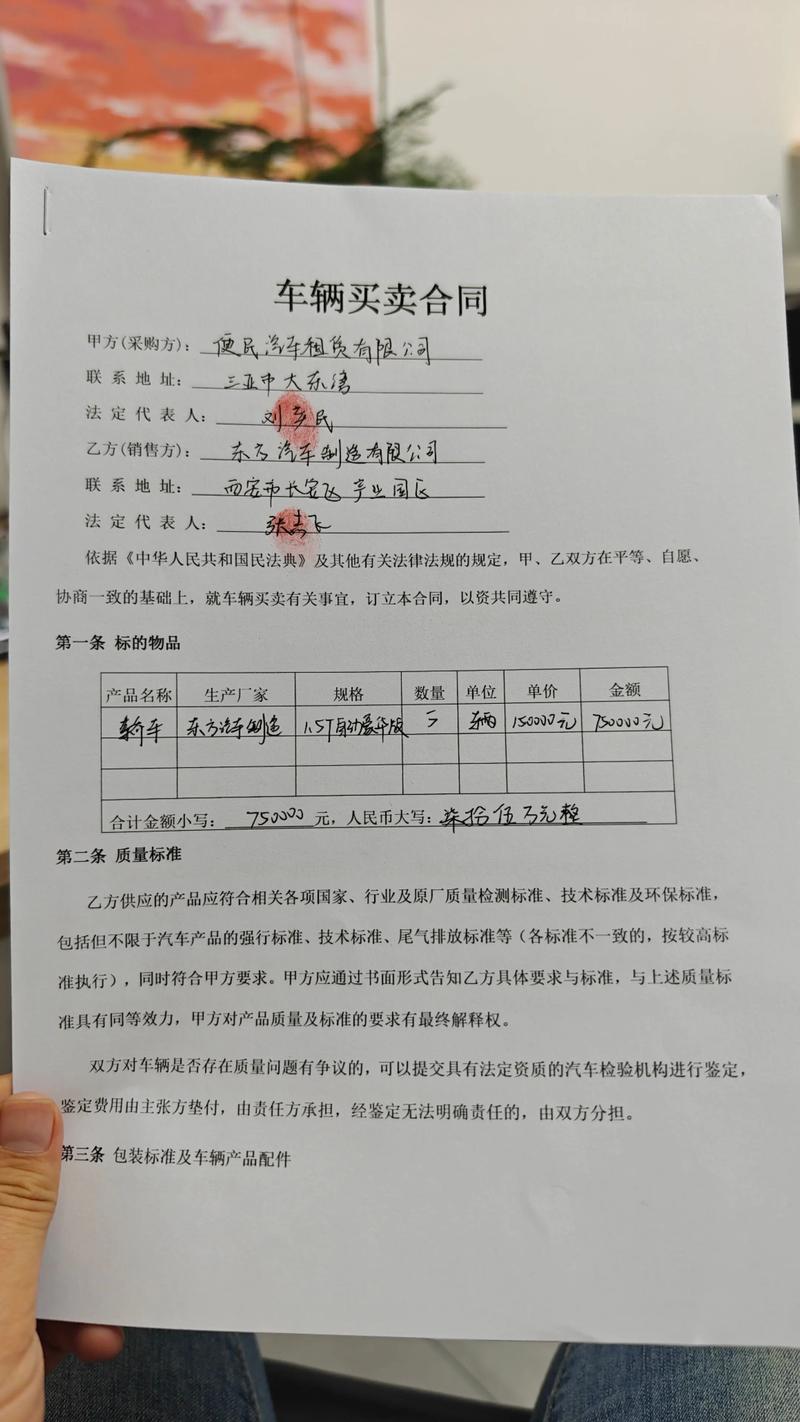 车辆买卖合同
甲方(采购方): 便民汽车租赁有限公司
联系地址: 三亚市大东湾
法定代表人: 刘民
乙方(销售方): 东方汽车制造有限公司
联系地址: 西安市长安区产业园区
法定代表人: 张飞
依据《中华人民共和国民法典》及其他有关法律法规的规定，甲、乙双方在平等、自愿、
协商一致的基础上，就车辆买卖有关事宜，订立本合同，以资共同遵守。
第一条 标的物品
产品名称 生产厂家 规格 数量 单位 单价 金额
轿车 东方汽车制造 1.5T自动豪华版 辆 150000元 750000元
合计金额小写: 750000 元，人民币大写: 柒拾伍万元整
第二条 质量标准
乙方供应的产品应符合相关各项国家、行业及原厂质量检测标准、技术标准及环保标准，
包括但不限于汽车产品的强行标准、技术标准、尾气排放标准等（各标准不一致的，按较高标
准执行），同时符合甲方要求。甲方应通过书面形式告知乙方具体要求与标准，与上述质量标
准具有同等效力，甲方对产品质量及标准的要求有最终解释权。
双方对车辆是否存在质量问题有争议的，可以提交具有法定资质的汽车检验机构进行鉴定，
鉴定费用由主张方垫付，由责任方承担，经鉴定无法明确责任的，由双方分担。
第三条 包装标准及车辆产品配件